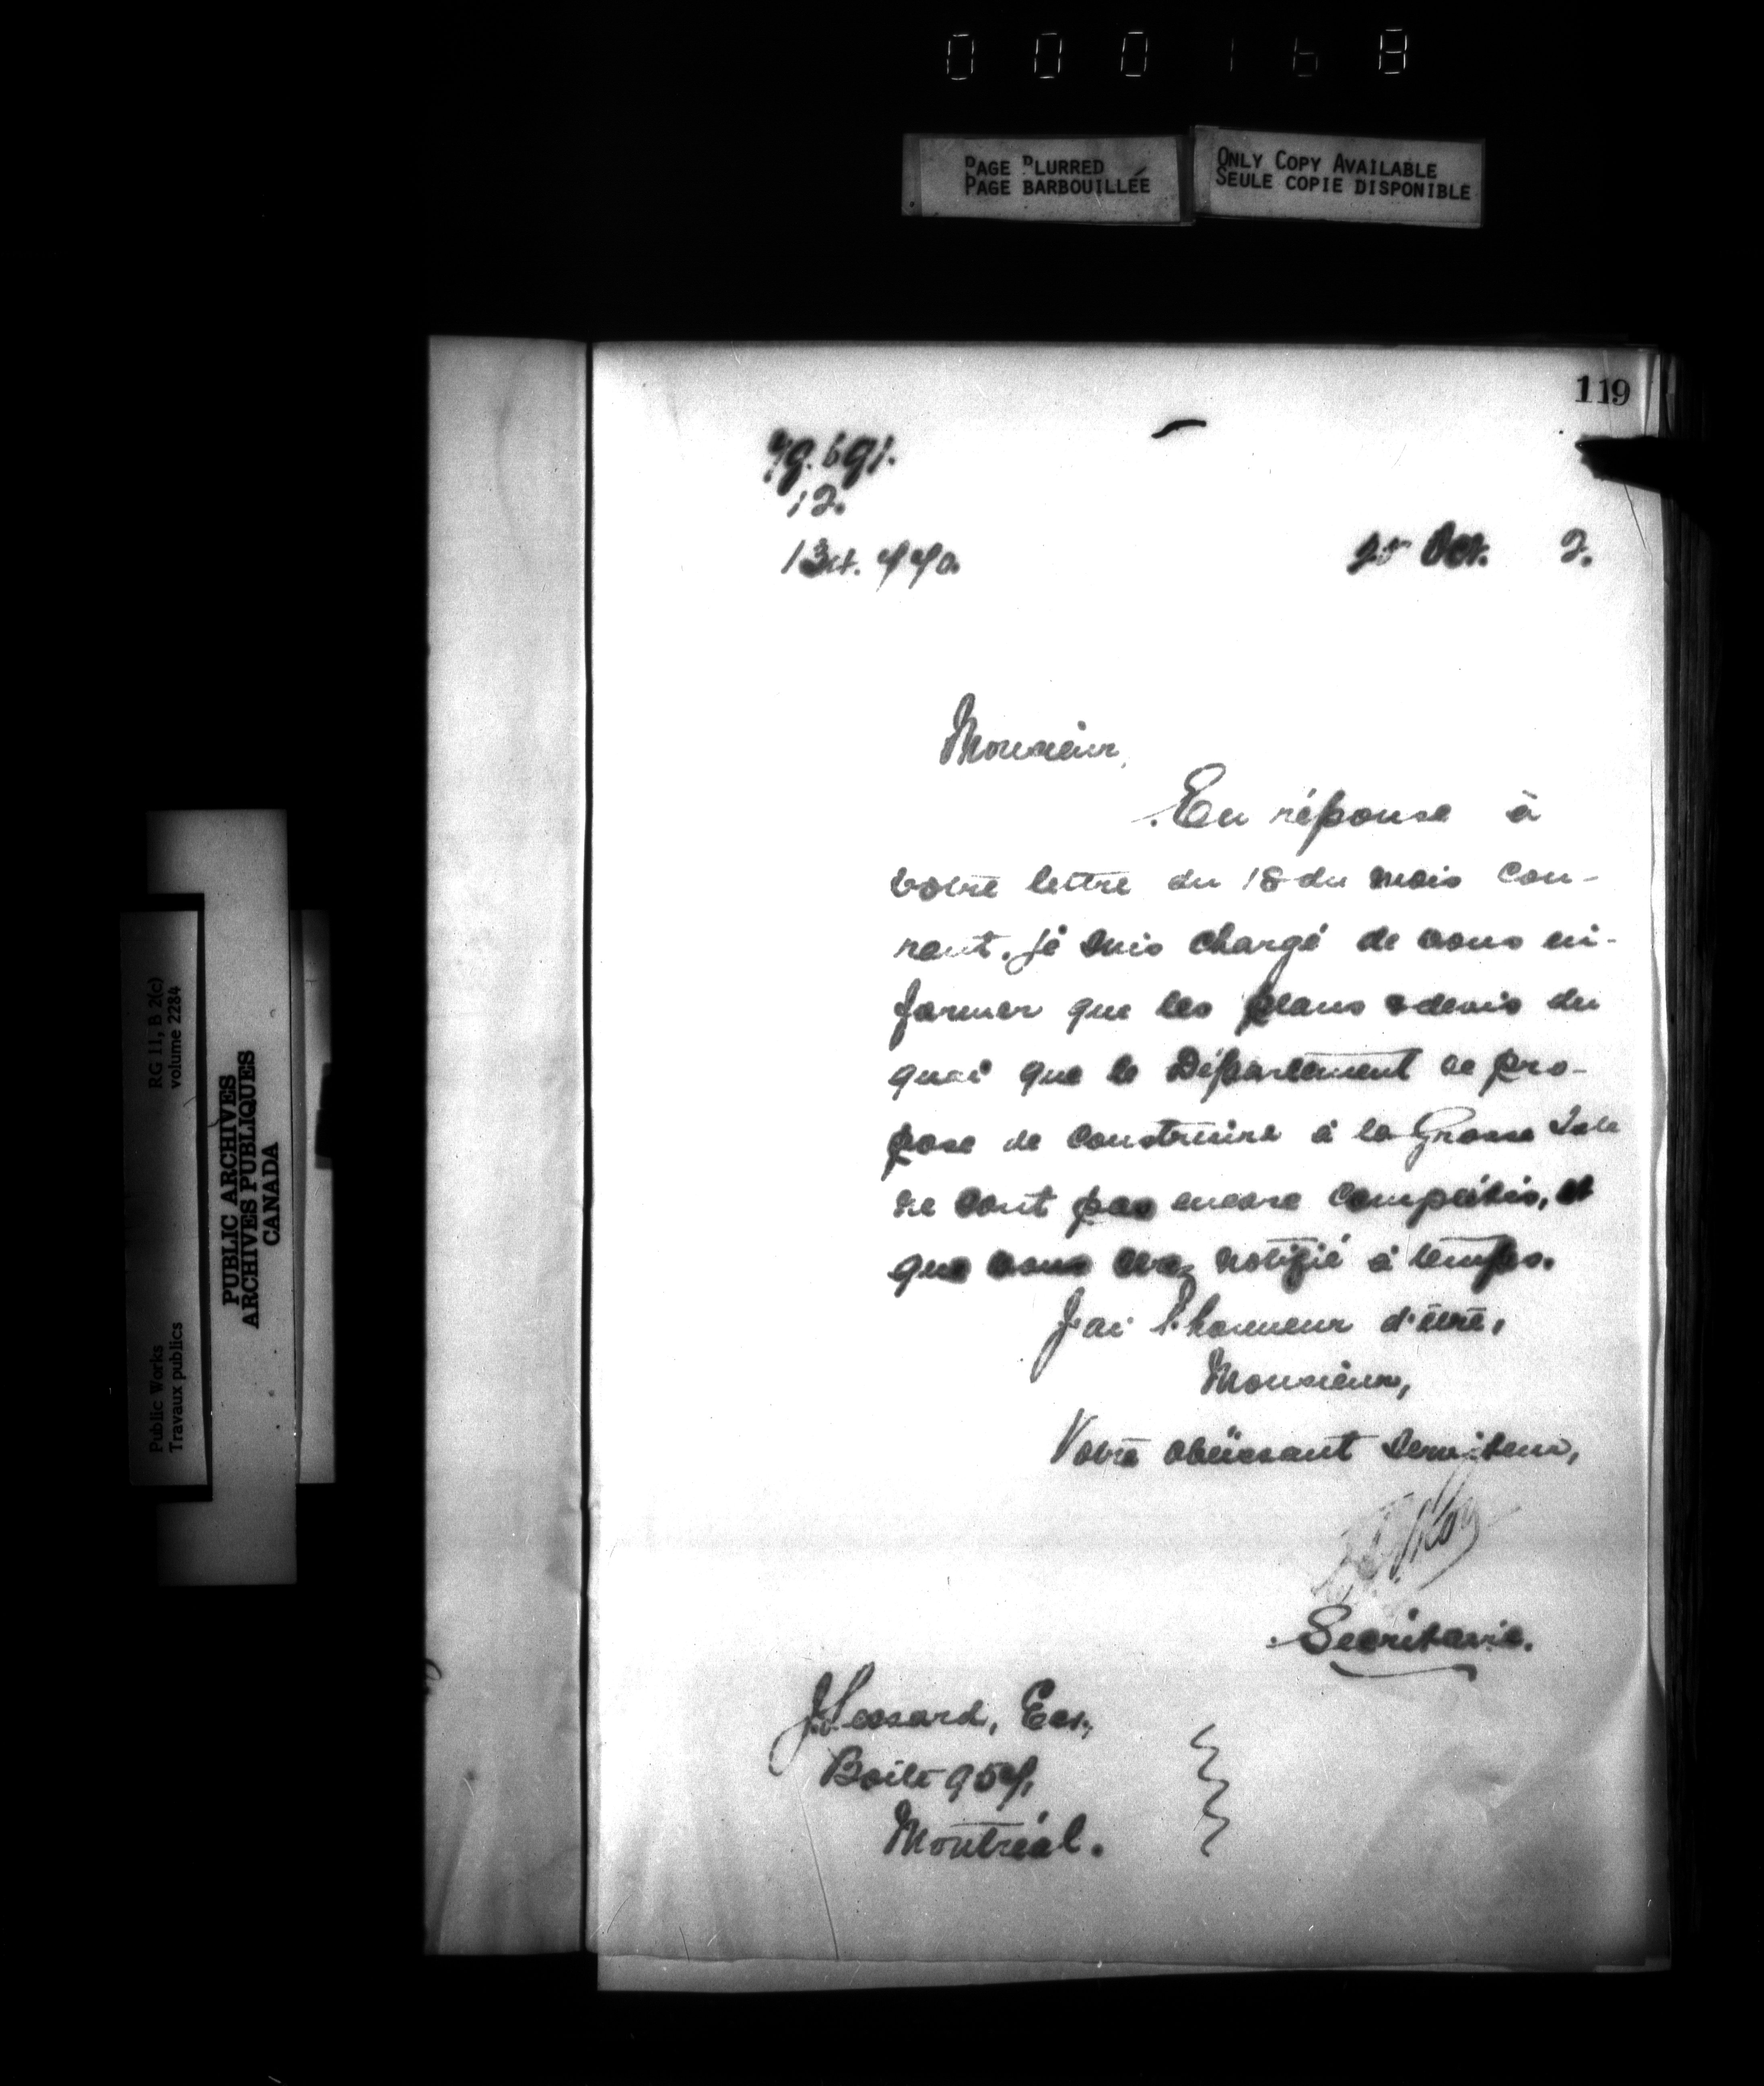 000168
PAGE BLURRED
PAGE BARBOUILLÉE
ONLY COPY AVAILABLE
SEULE COPIE DISPONIBLE
119
79.691.
12.
134.770.
25 Oct. 2.
Monsieur,
En réponse à
votre lettre du 18 du mois cou-
rant, je suis chargé de vous in-
former que les plans & devis du
quai que le Département se pro-
pose de construire à la Grosse Isle
ne sont pas encore complétés, et
que vous serez notifié à temps.
J'ai l'honneur d'être,
Monsieur,
Votre obéissant serviteur,
Roy
Secrétaire.
J. Lessard, Ecr.,
Boîte 957,
Montréal.
RG 11, B 2(c)
volume 2284
PUBLIC ARCHIVES
ARCHIVES PUBLIQUES
CANADA
Public Works
Travaux publics